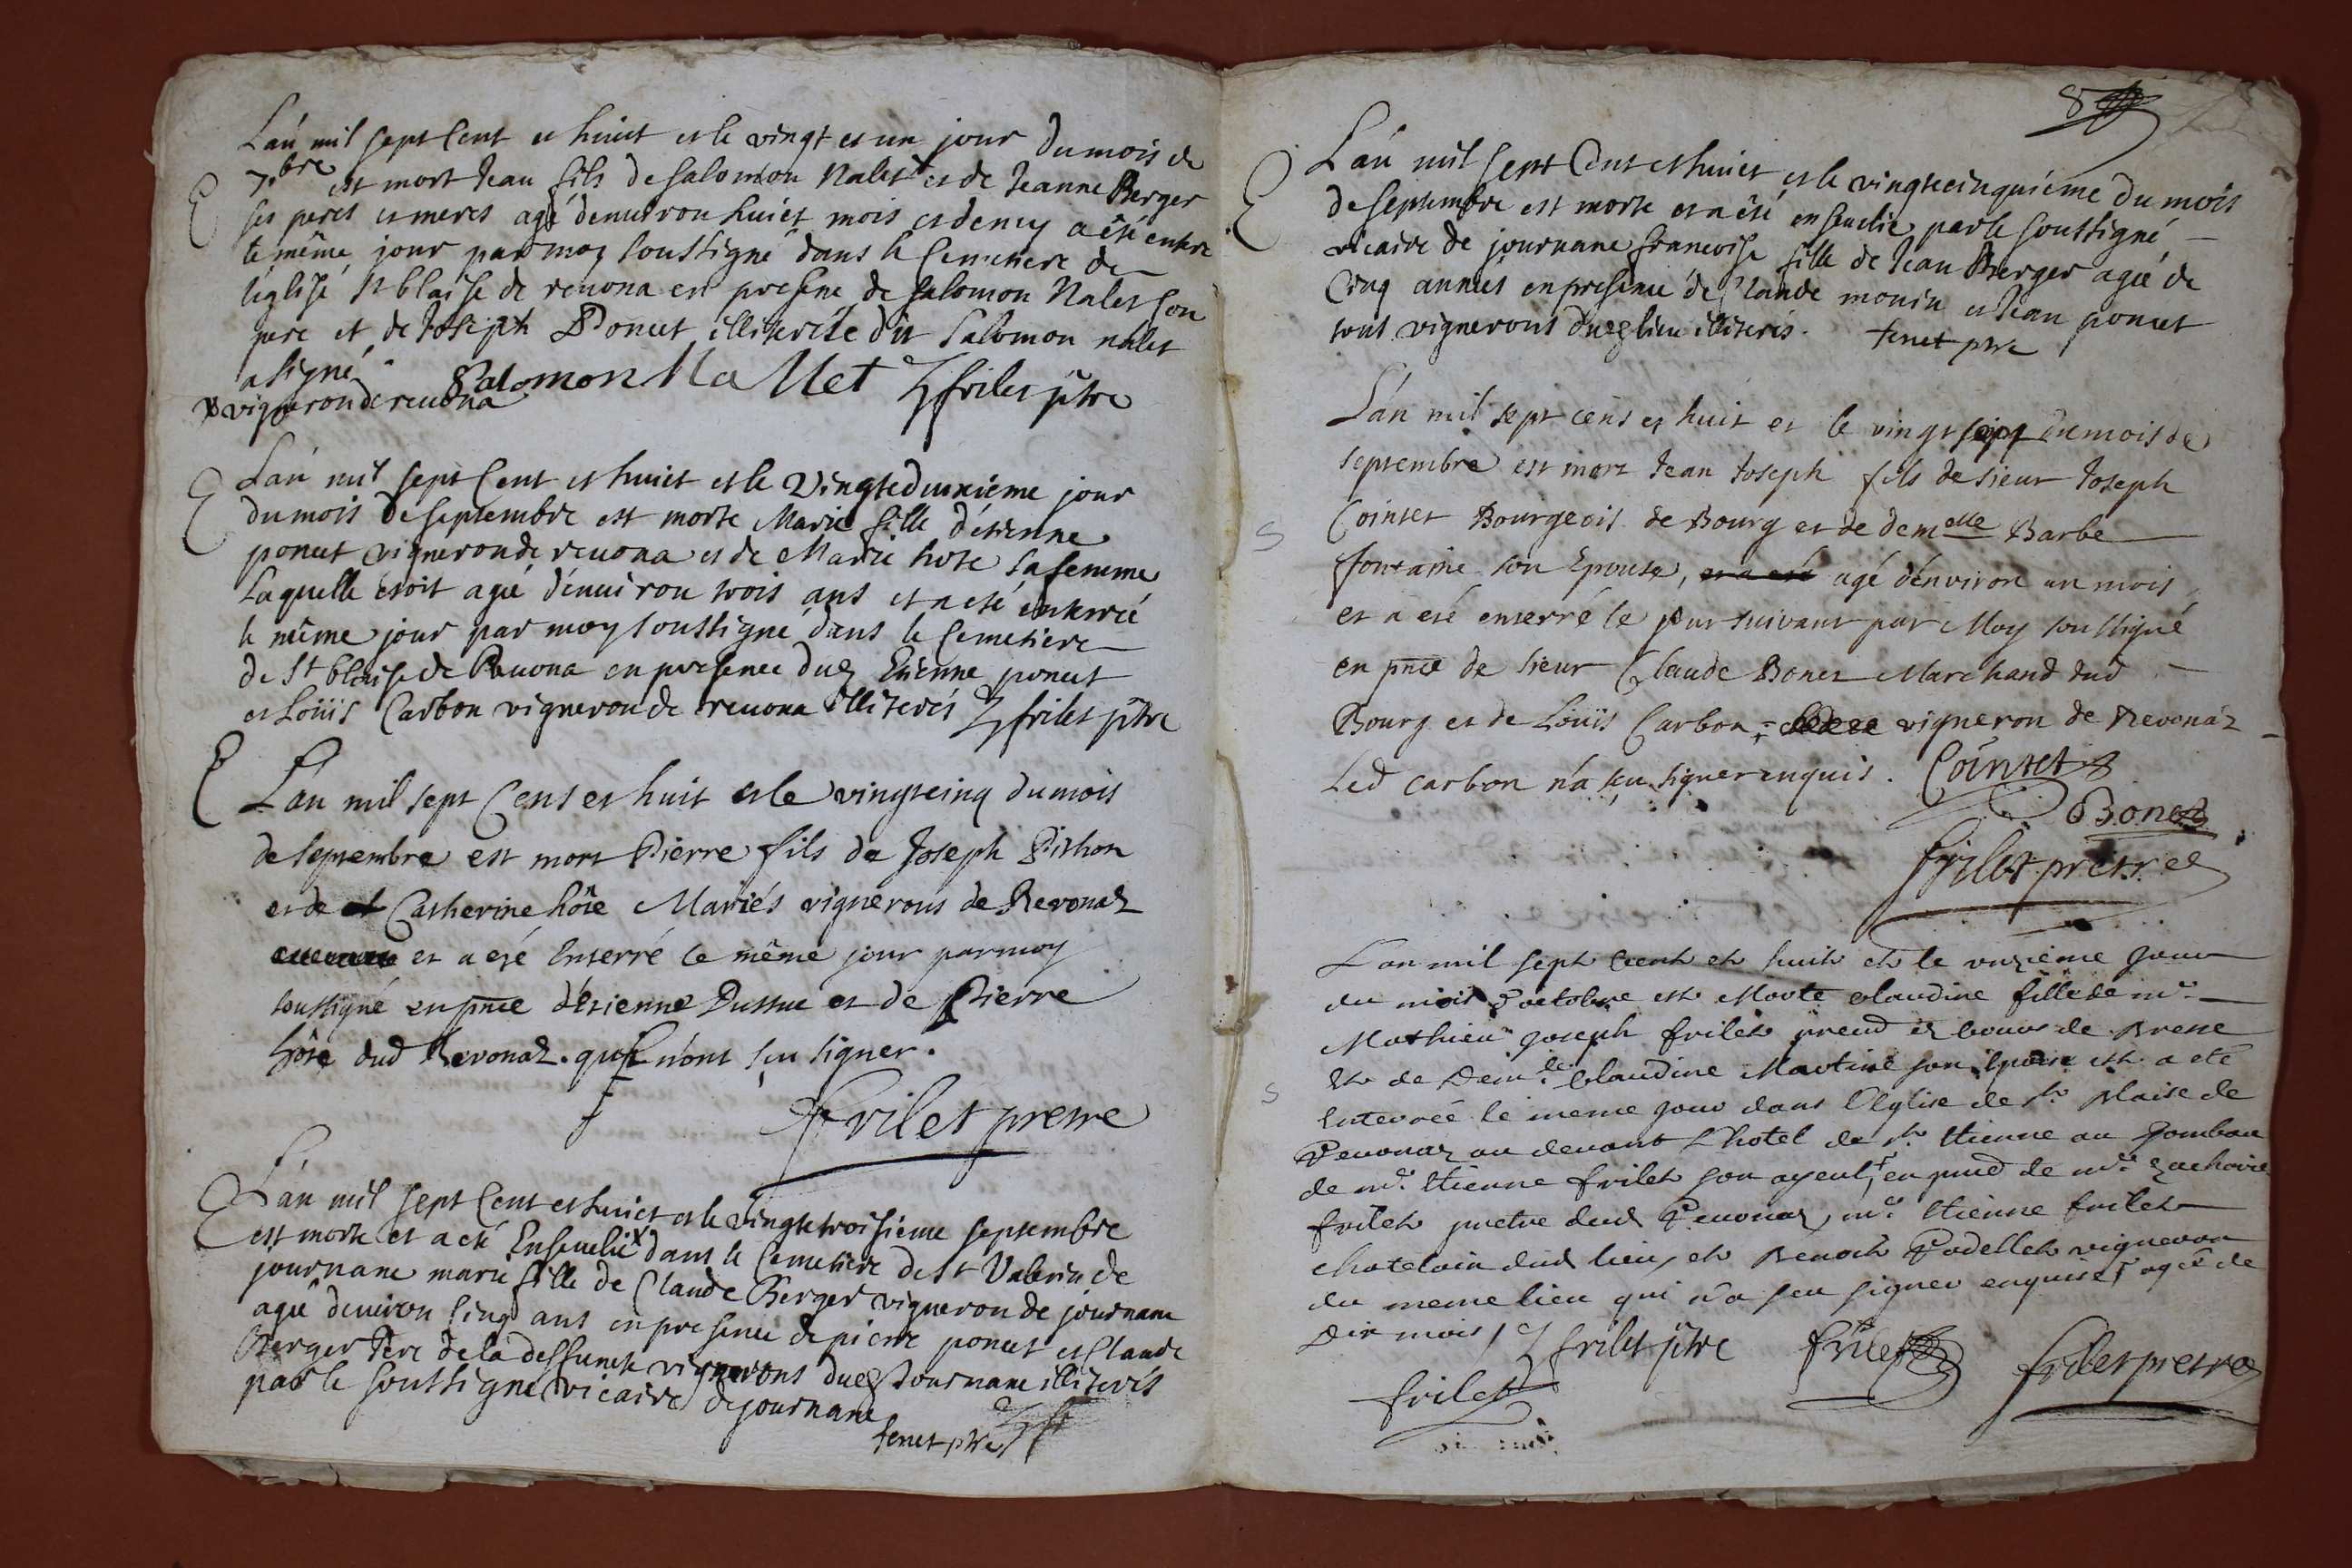 Lan mil sept Cent et huict et le vingt et un jour du mois de
7.bre est mort Jean fils de Salomon Nalet x et de Jeanne Berger
ses peres et meres agé denuiron huict mois et demy a été enterre
le même jour par moy soussigné dans le Cemetiere de
léglise St blaise de reuona en presene de Salomon Nalet son
pere et de Joseph Poncet illiterés le dit Salomon nalet
a signé
x vigneron de reuona Salomon Nallet Z frilet ptre
Lan mil sept Cent et huict et le Vingt deuxieme jour
du mois de septembre est morte Marie fille d'étienne
poncet vigneron de reuona et de Marie hote sa femme
Laquelle étoit agée dénuiron trois ans et a été enterrée
le même jour par moy soussigné dans le Cemetiere
de St blaise de Reuona en presence dud Etienne poncet
et Loüis Carbon vigneron de reuona illiterés Z frilet ptre
Lan mil sept Cens et huit et le vingt cinq du mois
de septembre est mort Pierre fils de Joseph Pithon
et de Catherine hôte Mariés vignerons de Revonaz
et a eté Enterré le même jour par moy
soussigné en pnce d'étienne Dussue et de Pierre
hôte dud Revonaz. qui n'ont sçu signer.
frilet pretre
Lan mil sept Cent et huict et le vingt troisieme septembre
est morte et a été Enseuelie x dans le Cemetiere de St Valerin de
journane marie fille de Claude Berger vigneron de journane
agée denviron Cinq ans en presence de pierre poncet et Claude
Berger Pere de la deffuncte vignerons dud Journane illiterés
par le soussigné vicaire de journane
tenet ptre Z ff
8
Lan mil sept Cent et huict et le vingt cinquiéme du mois
de septembre est morte et a été enseuelie par le soussigné
vicaire de journane francoise fille de Jean Berger agée de
Cinq années en presence de Claude monin et Jean poncet
tous vignerons dud lieu illiterés. tenet ptre
L'an mil sept cens et huit et le vingt sept du mois de
septembre est mort Jean Joseph fils de sieur Joseph
Cointet Bourgeois de Bourg et de demelle Barbe
fontaine son Epouse, et a eté agé d'environ un mois
et a eté enterré le jour suivant par Moy soussigné
en pnce de sieur Claude Bonet Marchand dud
Bourg et de Loüis Carbon vigneron de Revonaz
Led carbon n'a sçu signer enquis. Cointet
Bonet
frilet pretre
Lan mil sept cent et huit et le unzieme jour
du mois d'octobre est Morte claudine fille de mr.
Mathieu Joseph frilet
Et de Demlle. Claudine Martine son Epouse et a eté
Enterrée le meme jour dans l'Eglise de st. Blaise de
Revonaz au devant L'hotel de st. Etienne au Tombeau
de mr. Etienne frilet son ayeul, en pnce de mre. Zacharie
frilet pretre dud Revonaz, mr. Etienne frilet
chatelain dud lieu, et Benoit Rodellet vigneron
du meme lieu qui n'a sceu signer enquis agée de
Dix mois / Z frilet ptre frilet frilet pretre
frilet